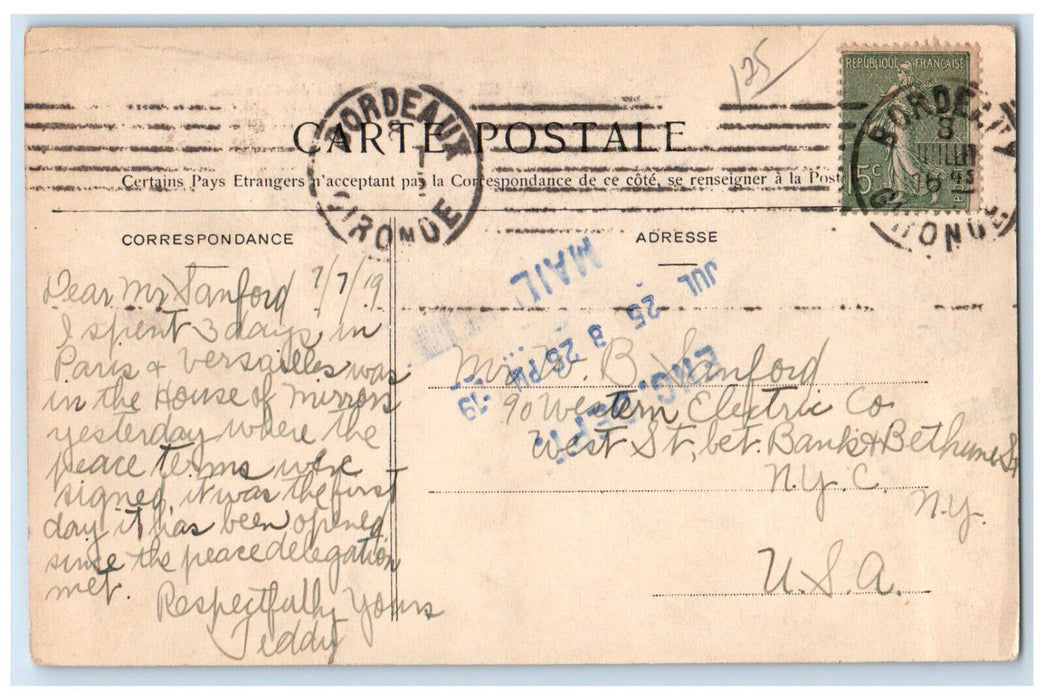 125
REPUBLIQUE FRANÇAISE
15c
BORDEAUX
GIRONDE
BORDEAUX
8
JUILLET
GIRONDE
CARTE POSTALE
Certains Pays Etrangers n'acceptant pas la Correspondance de ce côté, se renseigner à la Poste
CORRESPONDANCE
ADRESSE
MAIL
JUL 25 8 26 PM '19
ENG. DEPT.
Dear Mr Sanford 7/7/19
I spent 3 days in
Paris & Versailles was
in the House of Mirrors
yesterday where the
peace terms were
signed, it was the first
day it has been opened
since the peace delegation
met.
Respectfully Yours
Teddy
Mr. W. B. Sanford
90 Western Electric Co
West St, bet. Bank & Bethune St
N.Y.C.
N.Y.
U.S.A.